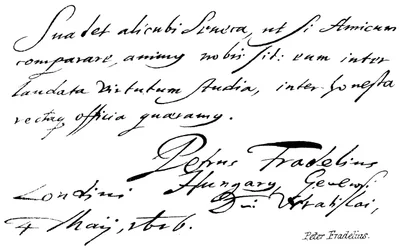 Suadet alicubi Seneca, ut si Amicum
comparare, animus nobis sit: eum inter
laudata virtutum studia, inter honesta
rectaq officia quæramus.
Petrus Fradelius
Londini Hungarus,
Dni
4 Maij, 1616.
Peter Fradelius.